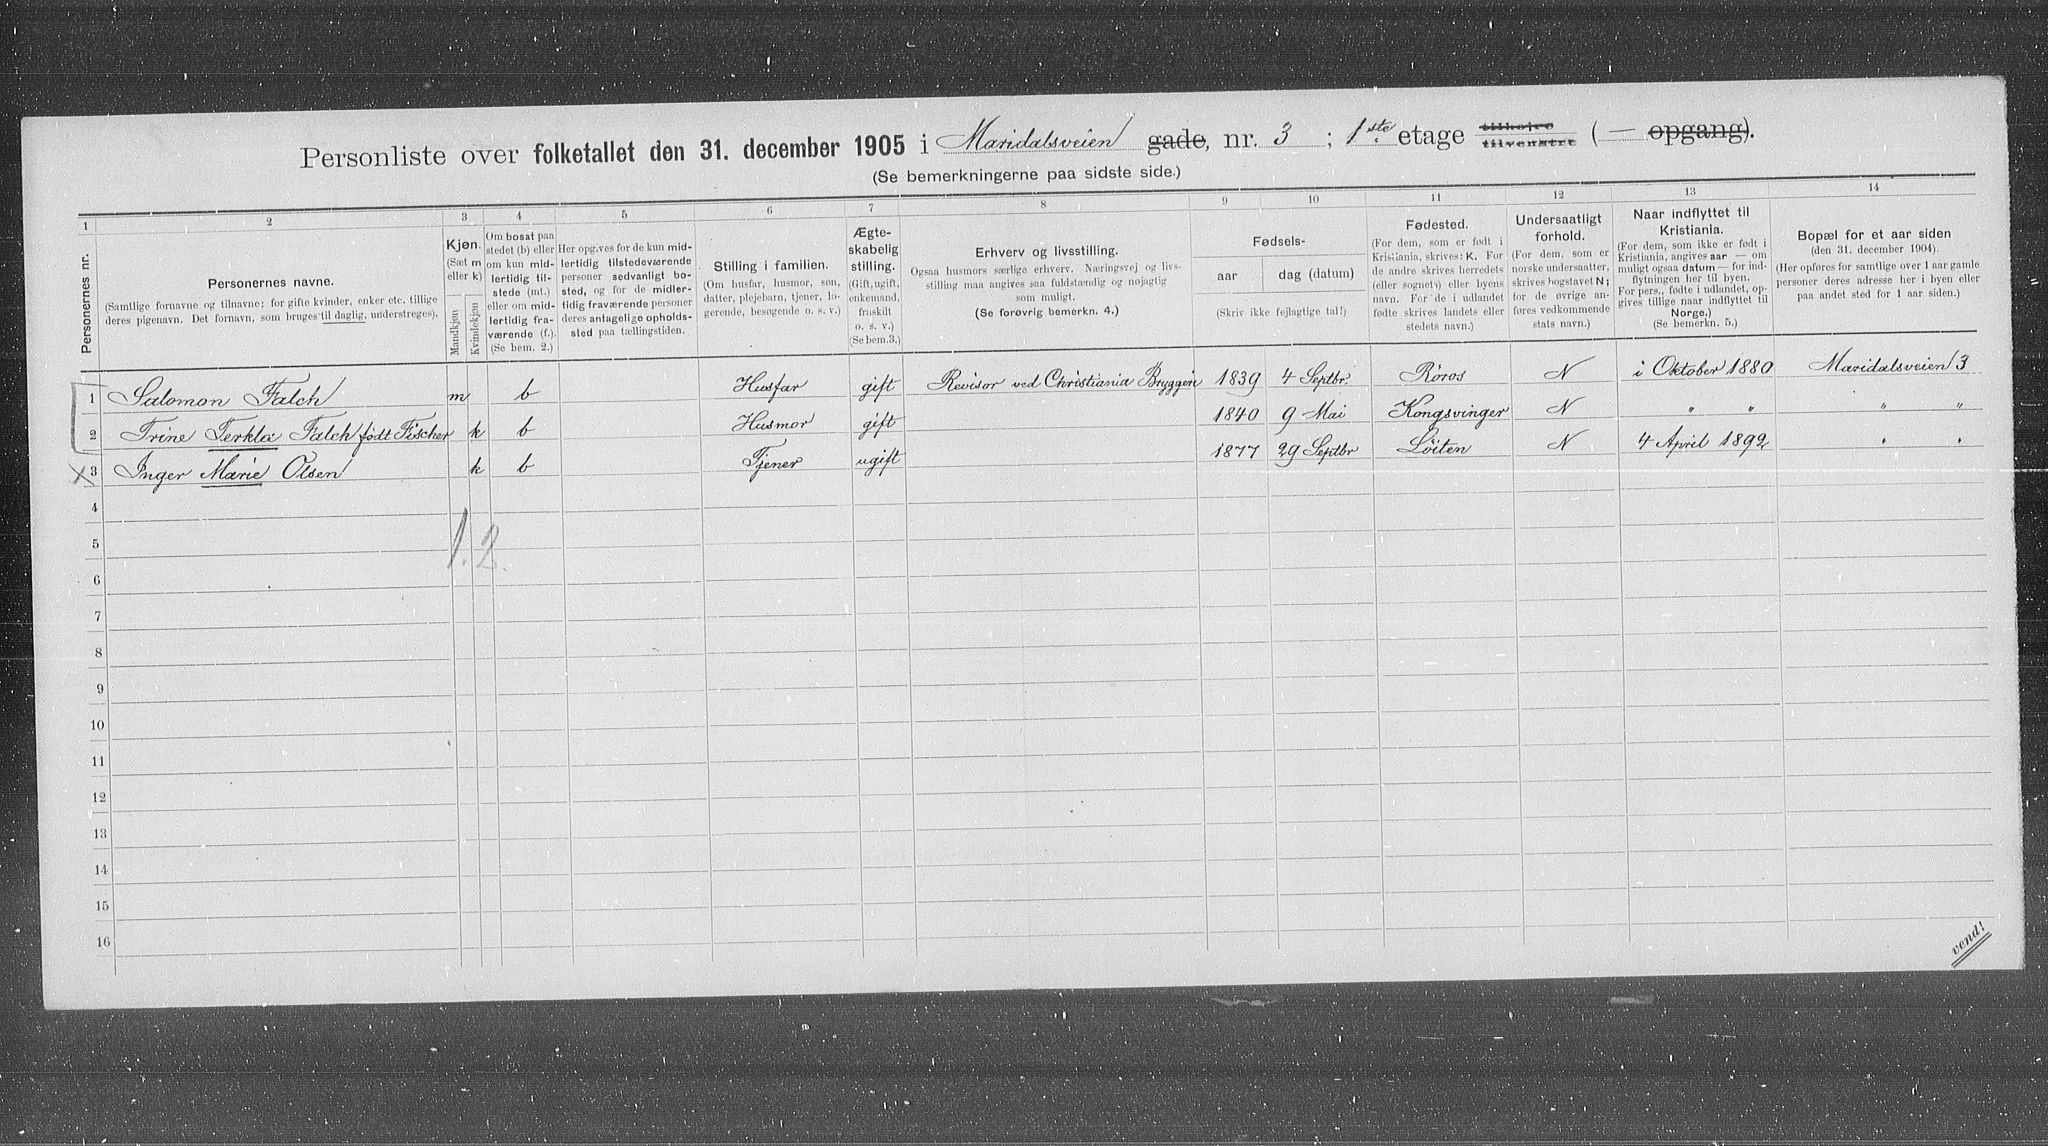 Personliste over folketallet den 31. december 1905 i Maridalsveien gade, nr. 3 ; 1ste etage tilhøire tilvenstre ( — opgang).
(Se bemerkningerne paa sidste side.)
1 2 3 4 5 6 7 8 9 10 11 12 13 14
Personernes nr.
Personernes navne.
(Samtlige fornavne og tilnavne; for gifte kvinder, enker etc. tillige
deres pigenavn. Det fornavn, som bruges til daglig, understreges).
Kjøn.
(Sæt m
eller k)
Mandkjøn
Kvindekjøn
Om bosat paa
stedet (b) eller
om kun mid-
lertidig til-
stede (mt.)
eller om mid-
lertidig fra-
værende (f.).
(Se bem. 2.)
Her opgives for de kun mid-
lertidig tilstedeværende
personer sedvanligt bo-
sted, og for de midler-
tidig fraværende personer
deres antagelige opholds-
sted paa tællingstiden.
Stilling i familien.
(Om husfar, husmor, søn,
datter, plejebarn, tjener, lo-
gerende, besøgende o. s. v.)
Ægte-
skabelig
stilling.
(Gift, ugift,
enkemand,
fraskilt
o. s. v.)
(Se bem.3.)
Erhverv og livsstilling.
Ogsaa husmors særlige erhverv. Næringsvej og livs-
stilling maa angives saa fuldstændig og nøjagtig
som muligt.
(Se forøvrig bemerkn. 4.)
Fødsels-
aar
dag (datum)
(Skriv ikke fejlagtige tal!)
Fødested.
(For dem, som er født i
Kristiania, skrives: K. For
de andre skrives herredets
(eller sognets) eller byens
navn. For de i udlandet
fødte skrives landets eller
stedets navn.)
Undersaatligt
forhold.
(For dem, som er
norske undersaatter,
skrives bogstavet N;
for de øvrige an-
føres vedkommende
stats navn.)
Naar indflyttet til
Kristiania.
(For dem, som ikke er født i
Kristiania, angives aar — om
muligt ogsaa datum — for ind-
flytningen her til byen.
For pers., fødte i udlandet, op-
gives tillige naar indflyttet til
Norge.)
(Se bemerkn. 5.)
Bopæl for et aar siden
(den 31. december 1904).
(Her opføres for samtlige over 1 aar gamle
personer deres adresse her i byen eller
paa andet sted for 1 aar siden.)
1 Salomon Falch m b Husfar gift Revisor ved Christiania Bryggeri 1839 4 Septbr. Röros N i Oktober 1880 Maridalsveien 3
2 Trine Terkla Falch født Fischer k b Husmor gift 1840 9 Mai Kongsvinger N " " " "
3 Inger Marie Olsen k b Tjener ugift 1877 29 Septbr Löiten N 4 April 1892 " "
4
5 1. 2.
6
7
8
9
10
11
12
13
14
15
16
vend!